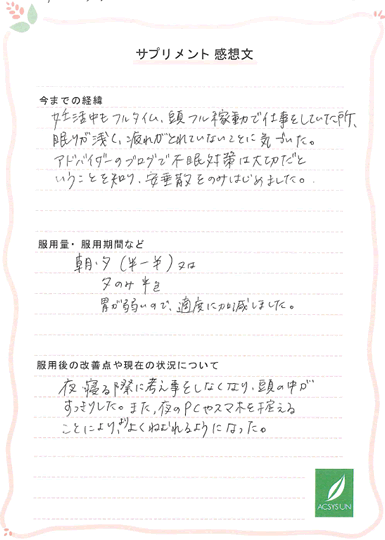 サプリメント 感想文
今までの経緯
妊活中もフルタイム、頭フル稼動で仕事をしていた所、
眠りが浅く、疲れがとれていないことに気づいた。
アドバイザーのブログで不眠対策は大切だと
いうことを知り、安亜散をのみはじめました。
服用量・服用期間など
朝・夕 (半-半) 又は
夕のみ 半を
胃が弱いので、適度に加減しました。
服用後の改善点や現在の状況について
夜 寝る際に考え事をしなくなり、頭の中が
すっきりした。また、夜のPCやスマホを控える
ことにより、よくねむれるようになった。
ACSYSUN